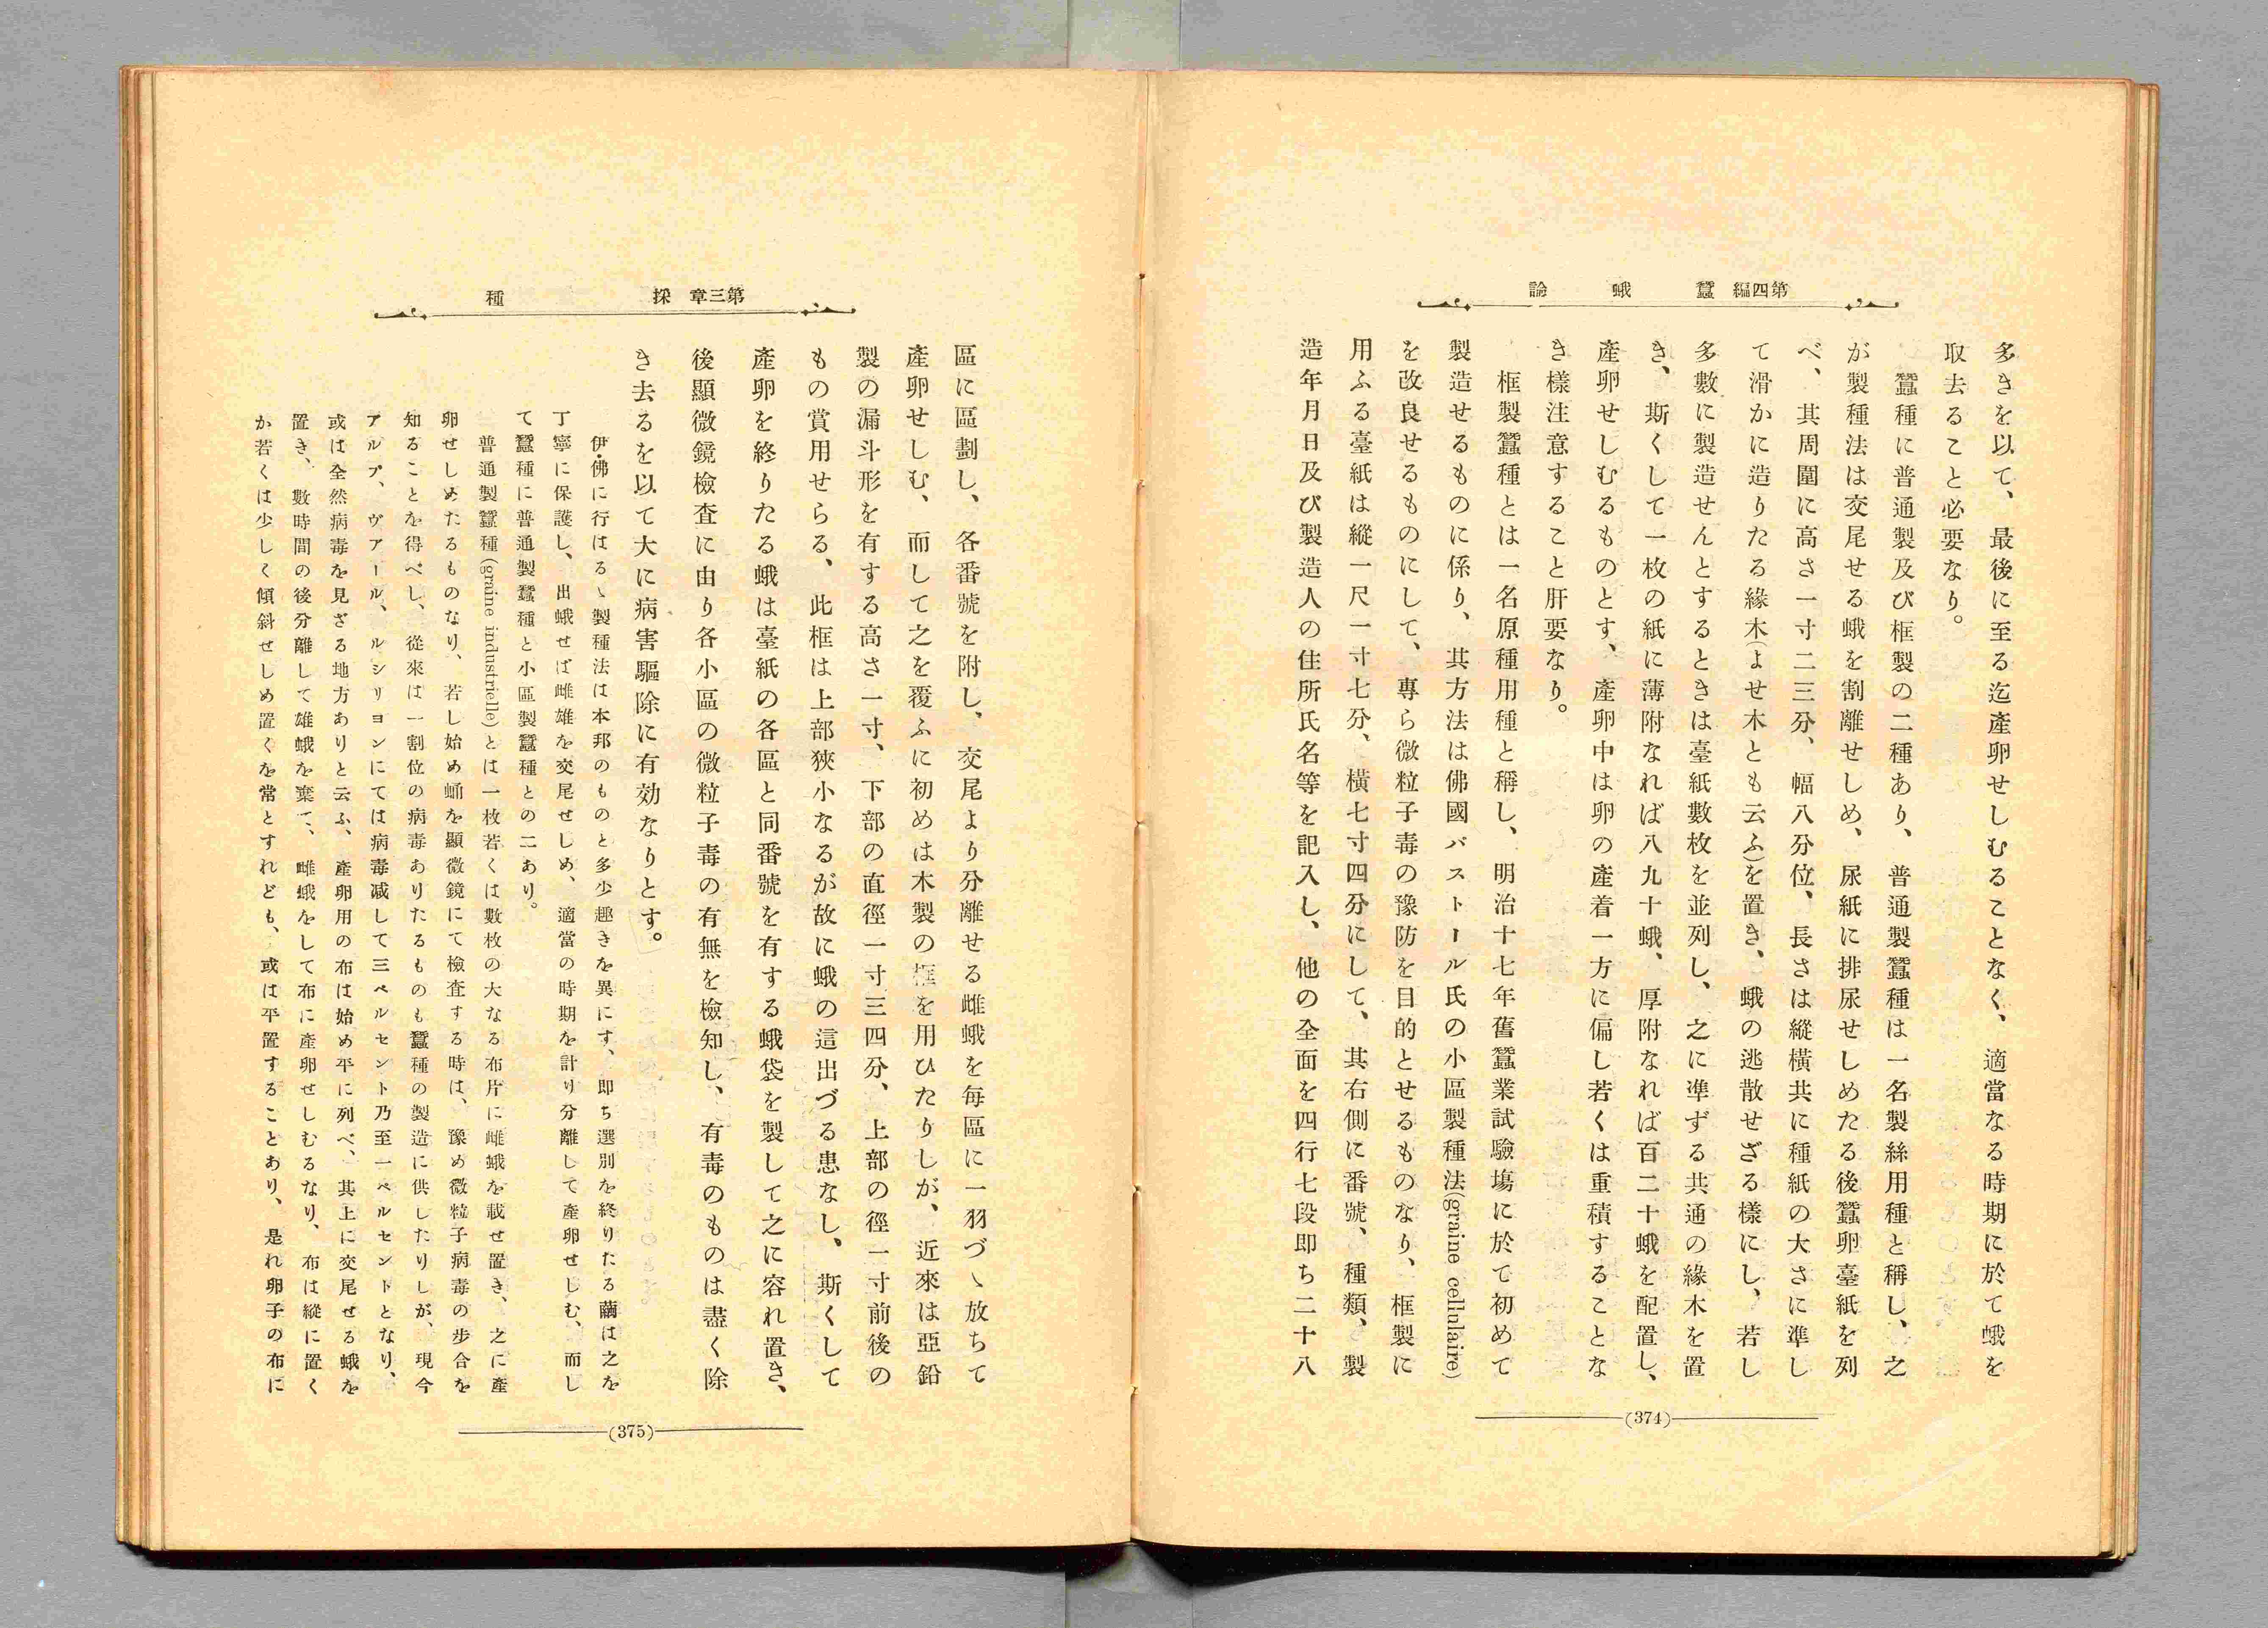 第四編 蠶蛾論
多きを以て、最後に至る迄產卵せしむることなく、適當なる時期に於て蛾を
取去ること必要なり。
蠶種に普通製及び框製の二種あり、普通製蠶種は一名製絲用種と稱し、之
が製種法は交尾せる蛾を割離せしめ、尿紙に排尿せしめたる後蠶卵臺紙を列
べ、其周圍に高さ一寸二三分、幅八分位、長さは縱橫共に種紙の大さに準し
て滑かに造りたる緣木(よせ木とも云ふ)を置き、蛾の逃散せざる樣にし、若し
多數に製造せんとするときは臺紙數枚を並列し、之に凖ずる共通の緣木を置
き、斯くして一枚の紙に薄附なれば八九十蛾、厚附なれば百二十蛾を配置し、
產卵せしむるものとす、產卵中は卵の產着一方に偏し若くは重積することな
き樣注意すること肝要なり。
框製蠶種とは一名原種用種と稱し、明治十七年舊蠶業試驗塲に於て初めて
製造せるものに係り、其方法は佛國パストール氏の小區製種法(graine cellnlaire)
を改良せるものにして、專ら微粒子毒の豫防を目的とせるものなり、框製に
用ふる臺紙は縱一尺一寸七分、橫七寸四分にして、其右側に番號、種類、製
造年月日及び製造人の住所氏名等を記入し、他の全面を四行七段即ち二十八
(374)
第三章 採種
區に區劃し、各番號を附し、交尾より分離せる雌蛾を每區に一羽づゝ放ちて
產卵せしむ、而して之を覆ふに初めは木製の框を用ひたりしが、近來は亞鉛
製の漏斗形を有する高さ一寸、下部の直徑一寸三四分、上部の徑一寸前後の
もの賞用せらる、此框は上部狹小なるが故に蛾の這出づる患なし、斯くして
產卵を終りたる蛾は臺紙の各區と同番號を有する蛾袋を製して之に容れ置き、
後顯微鏡檢査に由り各小區の微粒子毒の有無を檢知し、有毒のものは盡く除
き去るを以て大に病害驅除に有効なりとす。
伊・佛に行はるゝ製種法は本邦のものと多少趣きを異にす、即ち選別を終りたる繭は之を
丁寧に保護し、出蛾せば雌雄を交尾せしめ、適當の時期を計り分離して產卵せしむ、而し
て蠶種に普通製蠶種と小區製蠶種との二あり。
普通製蠶種(graine industrielle)とは一枚若くは數枚の大なる布片に雌蛾を載せ置き、之に產
卵せしめたるものなり、若し始め蛹を顯微鏡にて檢査する時は、豫め微粒子病毒の步合を
知ることを得べし、從來は一割位の病毒ありたるものも蠶種の製造に供したりしが、現今
アルプ、ヴアール、ルシリヨンにては病毒减して三ペルセント乃至一ペルセントとなり、
或は全然病毒を見ざる地方ありと云ふ、產卵用の布は始め平に列べ、其上に交尾せる蛾を
置き、數時間の後分離して雄蛾を棄て、雌蛾をして布に產卵せしむるなり、布は縱に置く
か若くは少しく傾斜せしめ置くを常とすれども、或は平置することあり、是れ卵子の布に
(375)